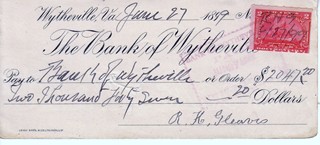 Wytheville, Va. June 27 1899 No.
The Bank of Wytheville
Pay to Bank of Wytheville or Order $2047 20
Two Thousand Forty Seven 20 Dollars
R. H. Gleaves